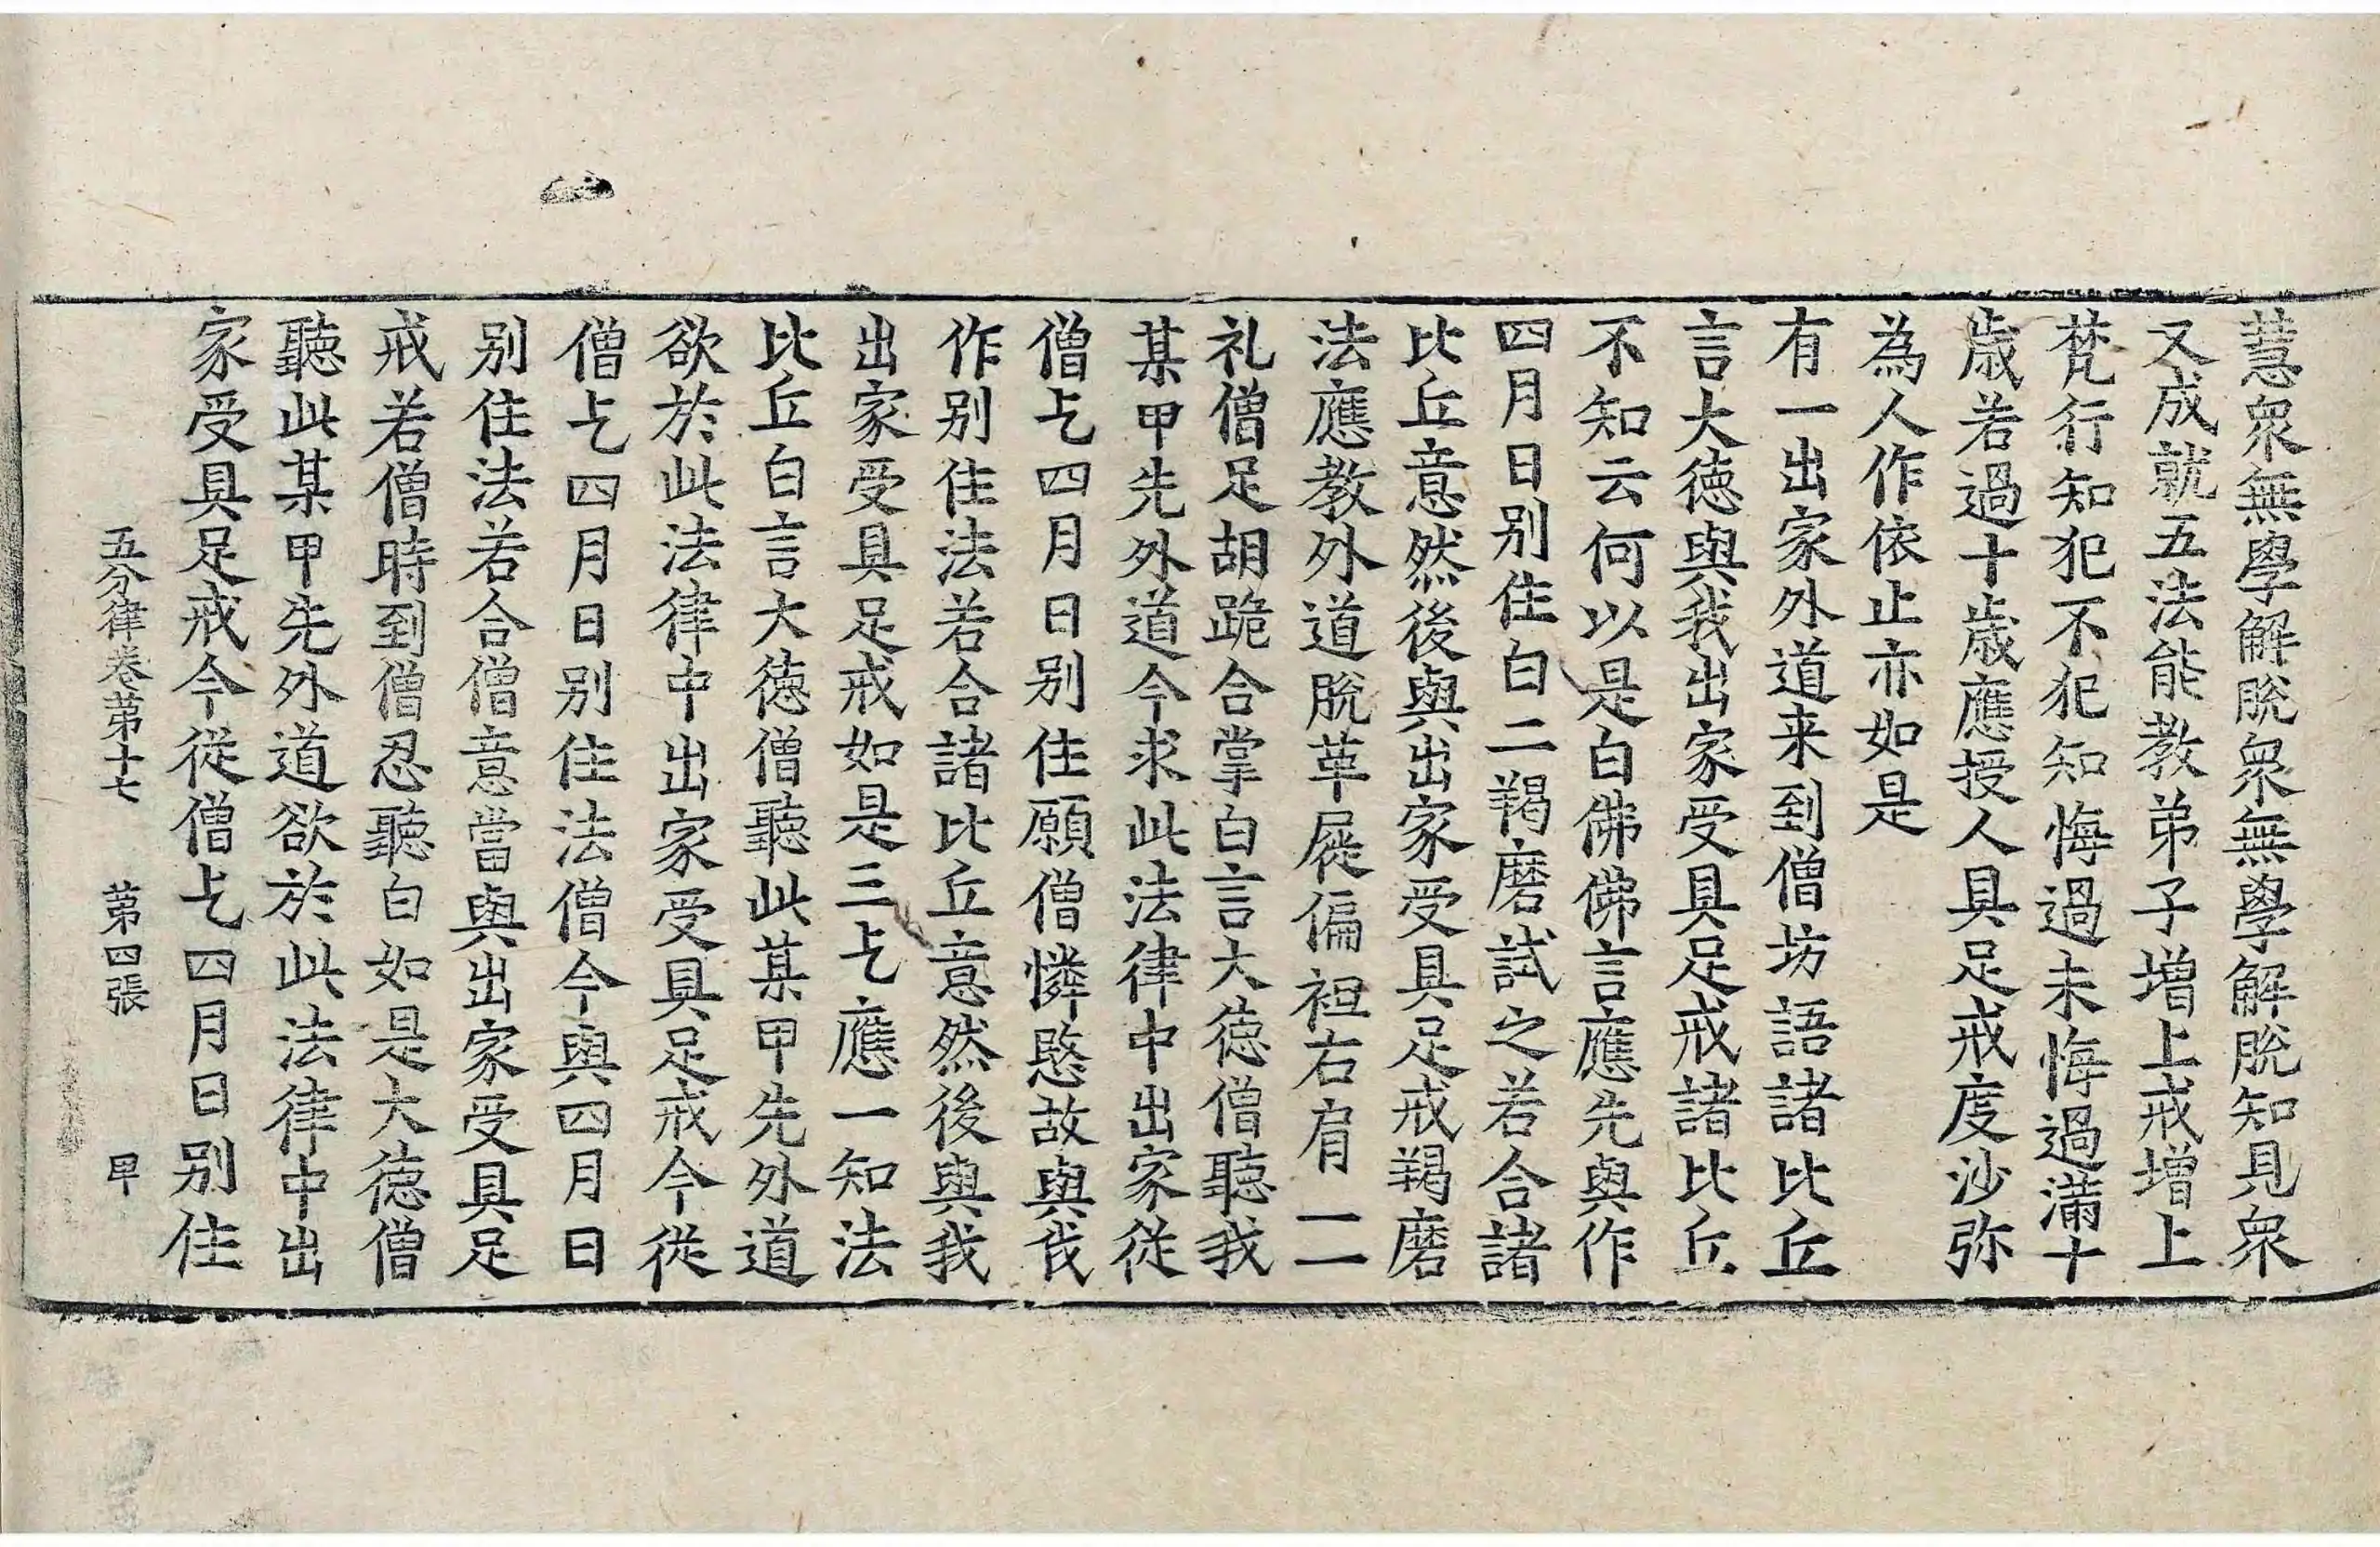 慧衆無學解脫衆無學解脫知見衆
又成就五法能教弟子增上戒增上
梵行知犯不犯知悔過未悔過滿十
歲若過十歲應授人具足戒度沙弥
為人作依止亦如是
有一出家外道来到僧坊語諸比丘
言大德與我出家受具足戒諸比丘
不知云何以是白佛佛言應先與作
四月日别住白二羯磨試之若合諸
比丘意然後與出家受具足戒羯磨
法應教外道脫革屣偏袒右肩一一
礼僧足胡跪合掌白言大德僧聽我
某甲先外道今求此法律中出家從
僧乞四月日别住願僧憐愍故與我
作别住法若合諸比丘意然後與我
出家受具足戒如是三乞應一知法
比丘白言大德僧聽此某甲先外道
欲於此法律中出家受具足戒今從
僧乞四月日别住法僧今與四月日
别住法若合僧意當與出家受具足
戒若僧時到僧忍聽白如是大德僧
聽此某甲先外道欲於此法律中出
家受具足戒今從僧乞四月日别住
五分律卷苐十七 苐四張 甲